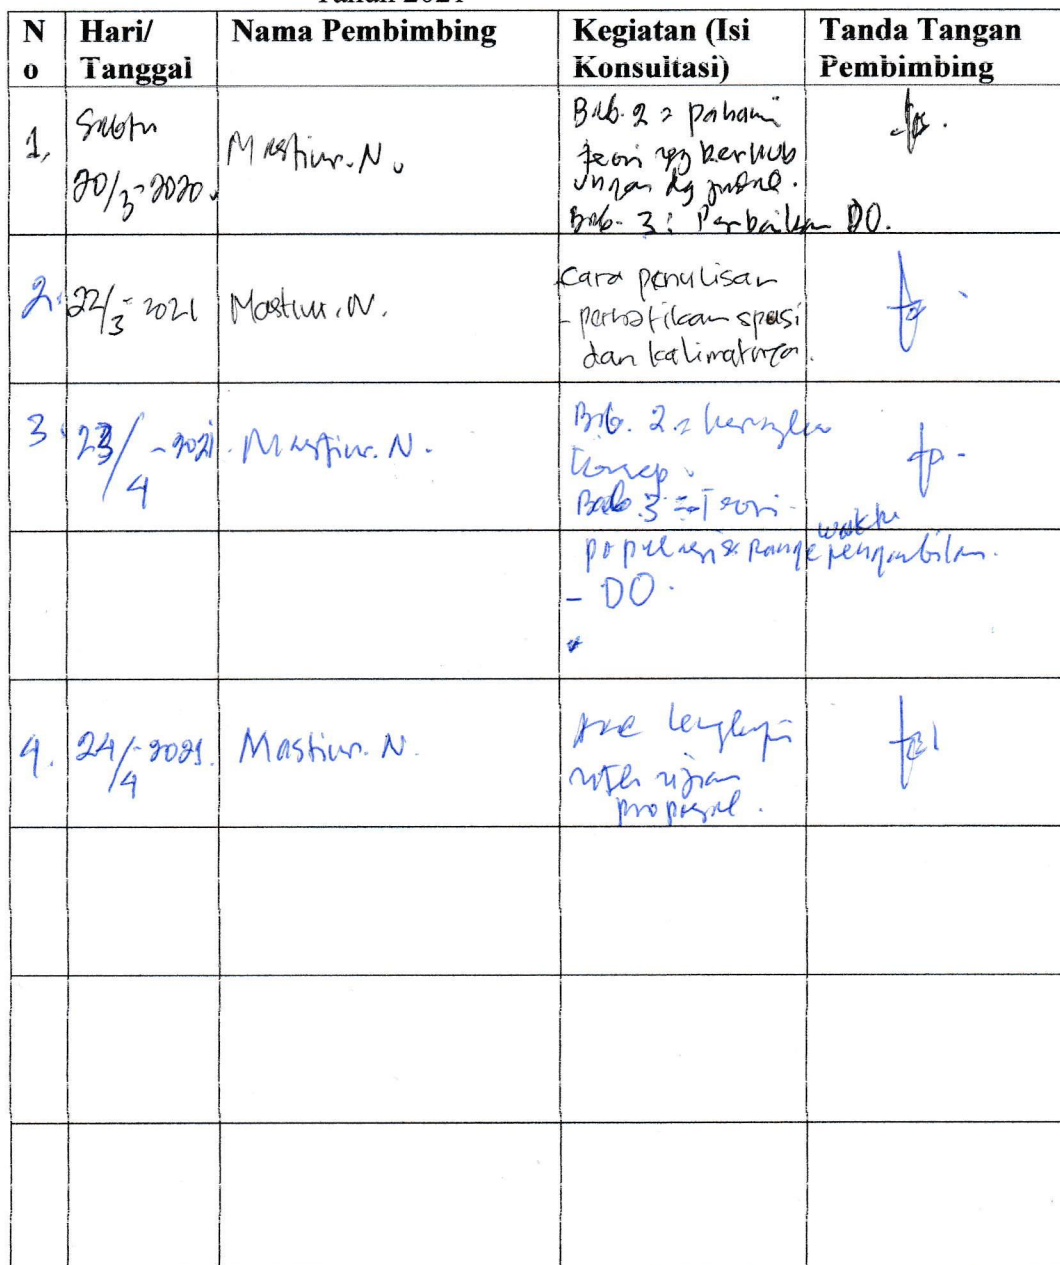 Tahun 2021
No Hari/ Tanggal Nama Pembimbing Kegiatan (Isi Konsultasi) Tanda Tangan Pembimbing
1, Sabtu
20/3-2020. Mastiur. N.
Bab. 2 = pahami
teori yg berhub
ungan dg judul.
Bab. 3 : Perbaikan DO.
2. 22/3-2021 Mastiur. N.
Cara penulisan
- perhatikan spasi
dan kalimatnya.
3. 23/4-2021. Mastiur. N.
Bab. 2 = kerangka
Konsep.
Bab. 3 = Teori
waktu
populasi pengambilan.
- DO.
4. 24/4-2021. Mastiur. N.
Acc lengkapi
utk ujian
proposal.